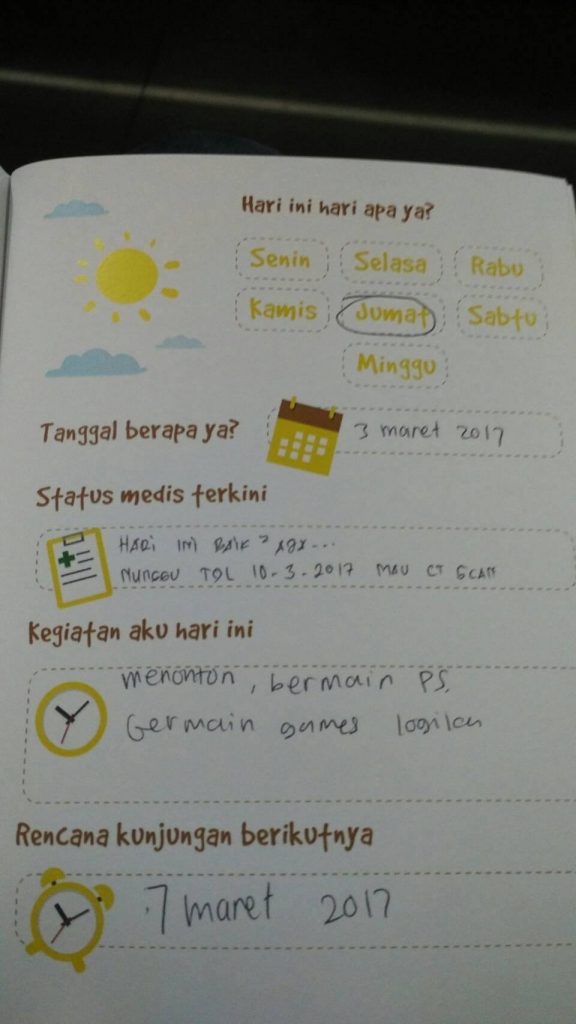 Hari ini hari apa ya?
Senin Selasa Rabu
Kamis Jumat Sabtu
Minggu
Tanggal berapa ya? 3 maret 2017
Status medis terkini
HARI INI BAIK² AJA...
NUNGGU TGL 10-3-2017 MAU CT SCAN
Kegiatan aku hari ini
menonton, bermain PS,
bermain games logika
Rencana kunjungan berikutnya
7 maret 2017